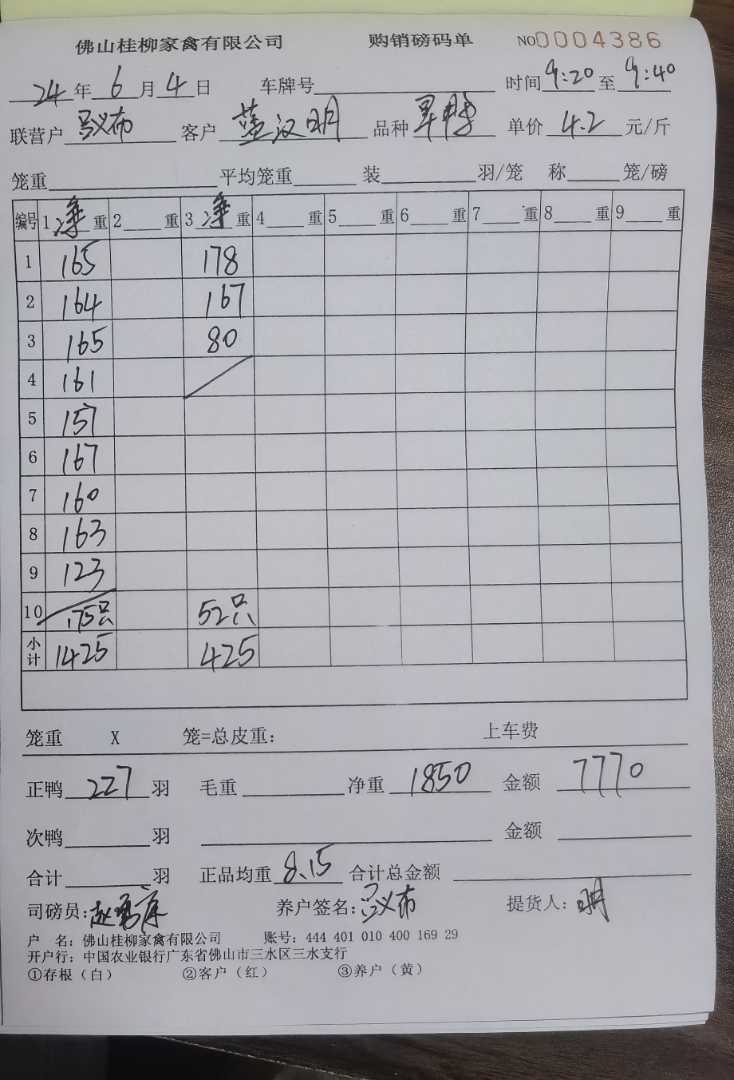 佛山桂柳家禽有限公司 购销磅码单 NO0004386
24年6月4日 车牌号 时间9:20至9:40
联营户 客户 蓝汉明 品种 旱鸭 单价 4.2 元/斤
笼重 平均笼重 装 羽/笼 称 笼/磅
编号 1净重 2 重 3净重 4 重 5 重 6 重 7 重 8 重 9 重
1 165 178
2 164 167
3 165 80
4 161
5 157
6 167
7 160
8 163
9 123
10 175只 52只
小计 1425 425
笼重 X 笼=总皮重： 上车费
正鸭 227 羽 毛重 净重 1850 金额 7770
次鸭 羽 金额
合计 羽 正品均重 8.15 合计总金额
司磅员： 养户签名： 提货人：明
户 名：佛山桂柳家禽有限公司 账号：444 401 010 400 169 29
开户行：中国农业银行广东省佛山市三水区三水支行
①存根（白） ②客户（红） ③养户（黄）